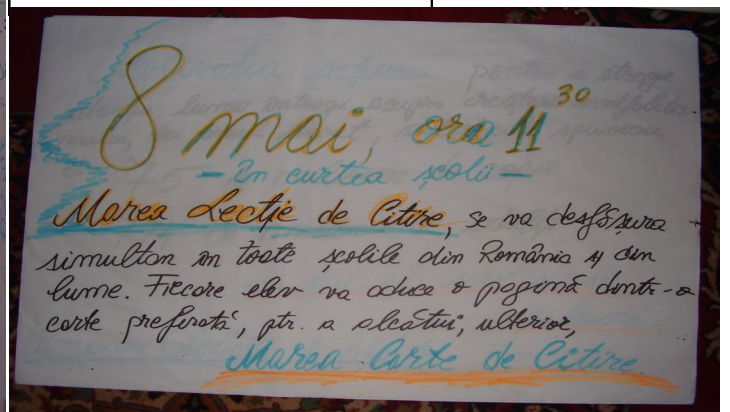 8 mai, ora 11³⁰
– în curtea școlii –
Marea Lecție de Citire, se va desfășura
simultan în toate școlile din România și din
lume. Fiecare elev va aduce o pagină dintr-o
carte preferată, ptr. a alcătui, ulterior,
Marea Carte de Citire.